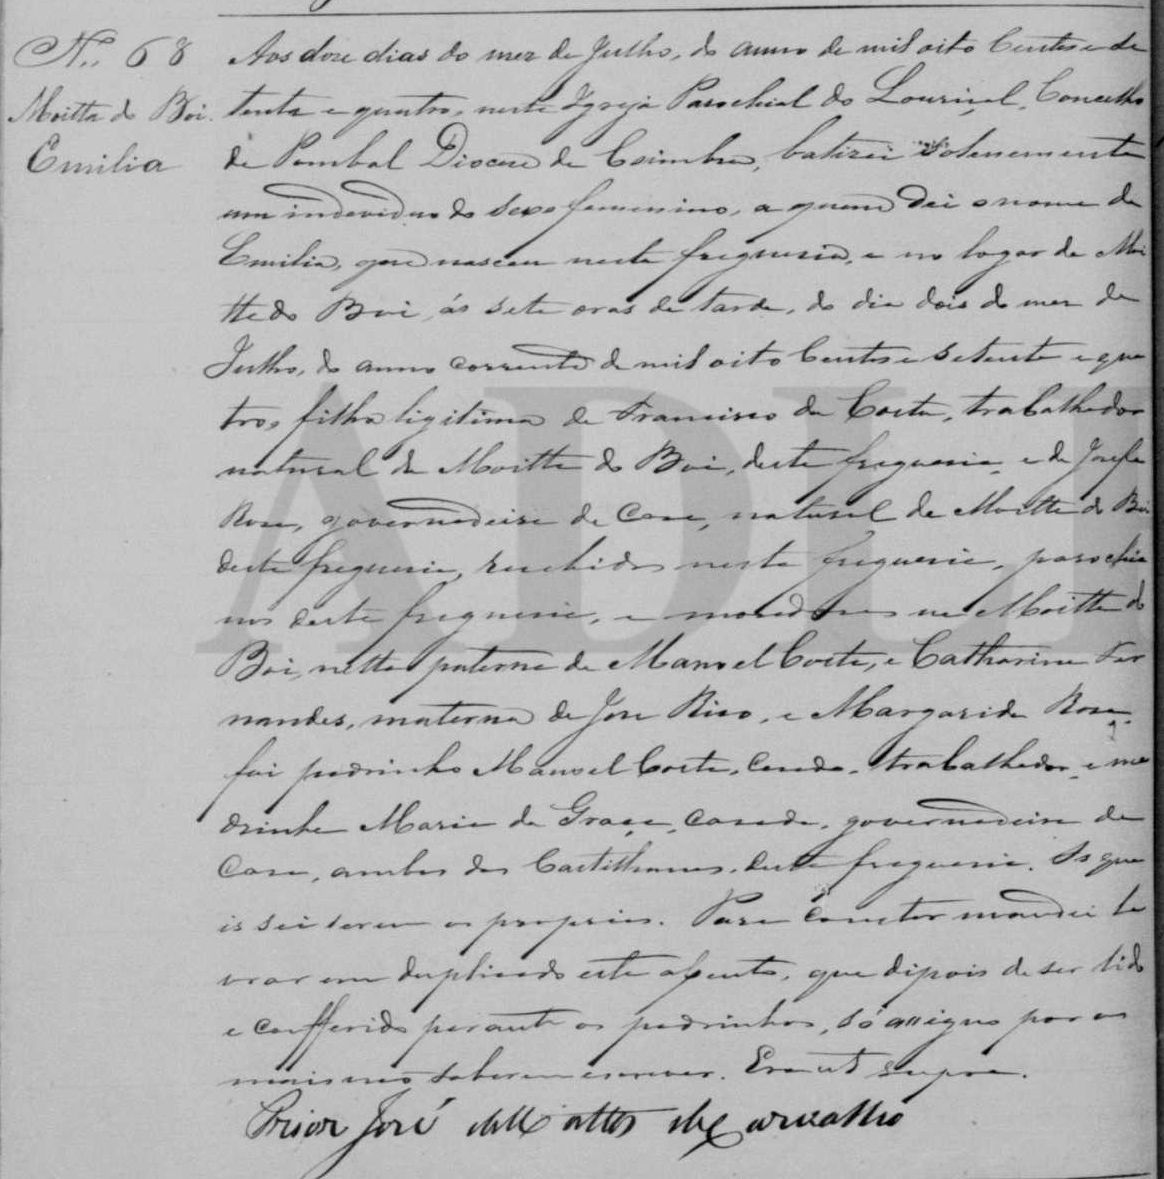 N.º 68
Moitta do Boi.
Emilia
Aos doze dias do mez de Julho, do anno de mil oito centos e se
tenta e quatro, nesta Igreja Parochial do Louriçal, Concelho
de Pombal Diocese de Coimbra, batizei solenemente
um individuo do sexo femenino, a quem dei o nome de
Emilia, que nasceu nesta freguesia, e no logar da Moi
tta do Boi, ás sete oras da tarde, do dia dois do mez de
Julho, do anno corrente de mil oito centos e setenta e qua
tro, filha ligitima de Francisco da Costa, trabalhador
natural da Moitta do Boi, desta freguesia, e de Josefa
Rosa, governadeira de casa, natural da Moitta do Boi
desta freguesia, recebidos nesta freguesia, parochia
nos desta freguesia, e moradores na Moitta do
Boi, netta paterna de Manoel Costa, e Catharina Fer
nandes, materna de Jose Rico, e Margarida Rosa,
foi padrinho Manoel Costa, casado, trabalhador, e ma
drinha Maria da Graça, casada, governadeira de
casa, ambos dos Castilhanos, desta freguesia. Os qua
is sei serem os proprios. Para constar mandei la
vrar em duplicado este assento, que dipois de ser lido
e confferido perante os padrinhos, só assigno por os
mais não saberem escrever. Era ut supra.
Prior José de Mattos de Carvalho
ADLR